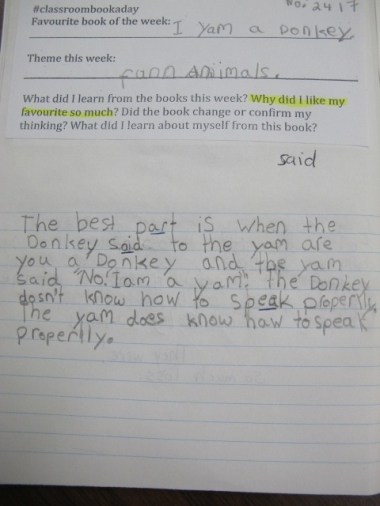 #classroombookaday
No. 24 17
Favourite book of the week: I yam a Donkey
Theme this week:
farm Animals.
What did I learn from the books this week? Why did I like my
favourite so much? Did the book change or confirm my
thinking? What did I learn about myself from this book?
said
The best part is when the
Donkey said to the yam are
you a Donkey and the yam
said "No! I am a yam." The Donkey
dosn't know how to speak properlly
The yam does know haw to speak
properlly.